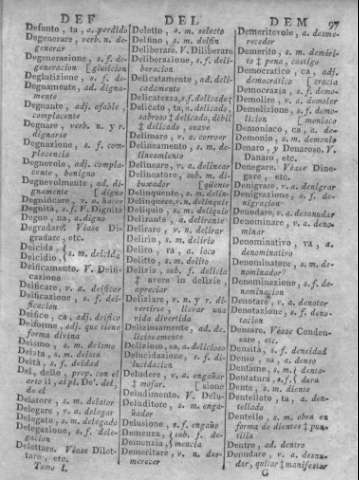 DEF DEL DEM 97
Defunto, ta, a. perdido
Degenerare, verb. n. degenerar
Degenerazione, s. f. degeneracion
Deglutizione, s. f.
Degnamente, ad. dignamente
Degnante, adj. afable, complacente
Degnare, verb. n. y r. dignarse
Degnazione, s. f. complacencia
Degnevole, adj. complacente, benigno
Degnevolmente, ad. dignamente
Degnificare, v. a. hacer digno
Degnità, s. f. V. Dignità
Degno, na, a. digno
Degradare. Vease Digradare, etc.
Deicida
Deicidio, s. m. deicida
Deificamento. V. Deificazione
Deificare, v. a. deificar
Deificazione, s. f. deificacion
Deifico, ca, adj. deifico
Deiforme, adj. que tiene forma divina
Deismo, s. m. deismo
Deista, s. m. deista
Deità, s. f. deidad
Del, delle, prep. con el
art. il, al pl. De', del, do el
Delatore, s. m. delator
Delegare, v. a. delegar
Delegato, s. m. delegado
Delegazione, s. f. delegacion
Delettare. Vease Dilettare, etc.
Tomo I.
Deletto, s. m. selecto
Delfino, s. m. delfin
Deliberare. V. Diliberare
Deliberazione, s. f. deliberacion
Delicatamente, ad. delicadamente
Delicatezza, s. f. delicadez
Delicato, ta, a. delicado, sabroso ‡ delicado, débil ‡ delicado, suave
Delineamento, s. m. delineamiento
Delineare, v. a. delinear
Delineatore, sub. m. dibuxador
Delinquente, s. m. delin-
Delinquere, v. n. delinquir
Deliquio, s. m. deliquio
Delirante, a. delirante
Delirare, v. n. delirar
Delirio, s. m. delirio
Deliro, ra, a. loco
Delitto, s. m. delito
Delizia, sub. f. delicia
‡ avere in delizie, apreciar
Deliziare, v. n. y r. divertirse, llevar una vida divertida
Deliziosamente, ad. deliciosamente
Delizioso, sa, a. delicioso
Delucidazione, s. f. dilucidacion
Deludere, v. a. engañar ‡ mofar.
Deludimento. V. Delusione
Deluditore, s. m. engañador
Delusione, s. f. engaño
Demenza, sub. f. demencia
Demeritare, v. n. desmerecer
Demeritevole, a. desmerecedor
Demerito, s. m. demérito ‡ pena, castigo
Democratico, ca, adj. democrático
Democrazia, s. f. democracia
Demolire, v. a. demoler
Demolizione, s. f. demolicion
Demoniaco, ca, a. demoniaco
Demonio, s. m. demonio
Denaro, y Denaroso. V. Danaro, etc.
Denegare. Vease Dinegare, etc.
Denigrare, v. a. denigrar
Denigrazione, s. f. denigracion
Denudare, v. a. desnudar
Denominare, v. a. denominar
Denominativo, va, a. denominativo
Denominatore, s. m. denominador
Denominazione, s. f. denominacion
Denotare, v. a. denotar
Denotazione, s. f. denotacion
Densare. Vease Condensare, etc.
Densità, s. f. densidad
Denso, sa, a. denso
Dentame, s. m.
Dentatura, s. f.
Dente, s. m. diente
Dentellato, ta, a. dentellado
Dentello, s. m. obra en forma de dientes ‡
Dentro, ad. dentro
Denudare, v. a. desnudar, quitar ‡ manifestar
G